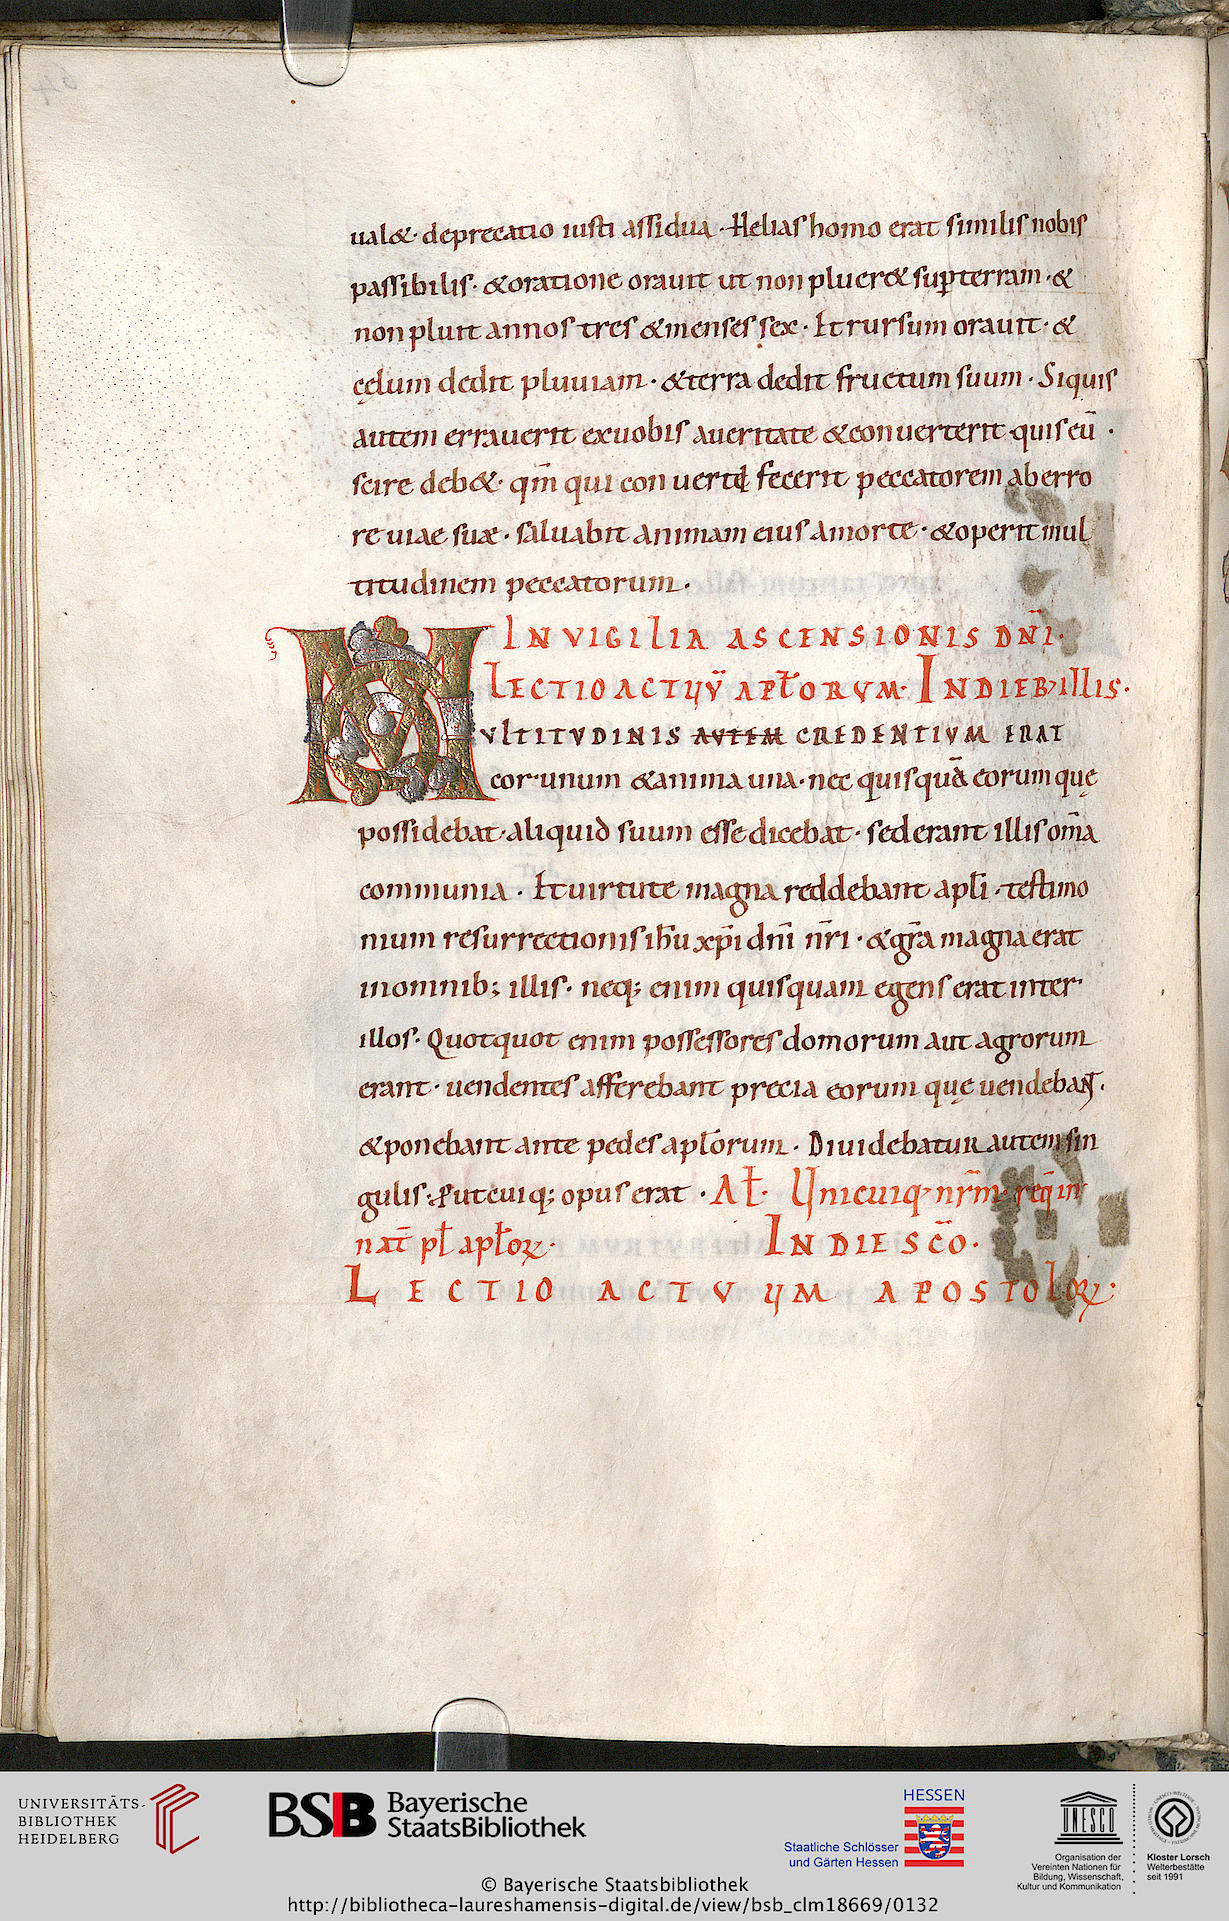 ual&· deprecatio iusti assidua · Helias homo erat similis nobis
passibilis· &oratione orauit ut non pluer& suꝑterram·&
non pluit annos tres &menses sex· Et rursum orauit· &
cęlum dedit pluuiam· &terra dedit fructum suum· Siquis
autem errauerit exuobis aueritate &conuerterit quis eū·
scire deb&· qm̄ qui con uerti fecerit peccatorem aberro
re uiae suæ· saluabit animam eius amorte· &operit mul
titudinem peccatorum·
IN VIGILIA ASCENSIONIS DN̄I·
LECTIO ACTUŪ APŁORVM· INDIEB, illis·
MVLTITVDINIS AVTEM CREDENTIVM ERAT
cor unum &anima una· nec quisquā eorum quę
possidebat· aliquid suum esse dicebat· sed erant illis om̄a
communia· Et uirtute magna reddebant apłi· testimo
nium resurrectionis ih̄u xp̄i dn̄i nr̄i· &gr̄a magna erat
inomnib; illis· neq; enim quisquam egens erat inter
illos· Quotquot enim possessores domorum aut agrorum
erant· uendentes afferebant precia eorum quę uendebant·
&ponebant ante pedes apłorum· Diuidebatur autem sin
gulis; Put cuiq; opus erat· Ał· Unicuiq, nr̄m· req̄ in
nat̄ pł apłoꝝ· IN DIE SC̄O·
LECTIO ACTVUM APOSTOLOꝝ·
UNIVERSITÄTS-
BIBLIOTHEK
HEIDELBERG
BSB Bayerische
StaatsBibliothek
HESSEN
Staatliche Schlösser
und Gärten Hessen
UNESCO
Organisation der
Vereinten Nationen für
Bildung, Wissenschaft,
Kultur und Kommunikation
Kloster Lorsch
Welterbestätte
seit 1991
© Bayerische Staatsbibliothek
http://bibliotheca-laureshamensis-digital.de/view/bsb_clm18669/0132